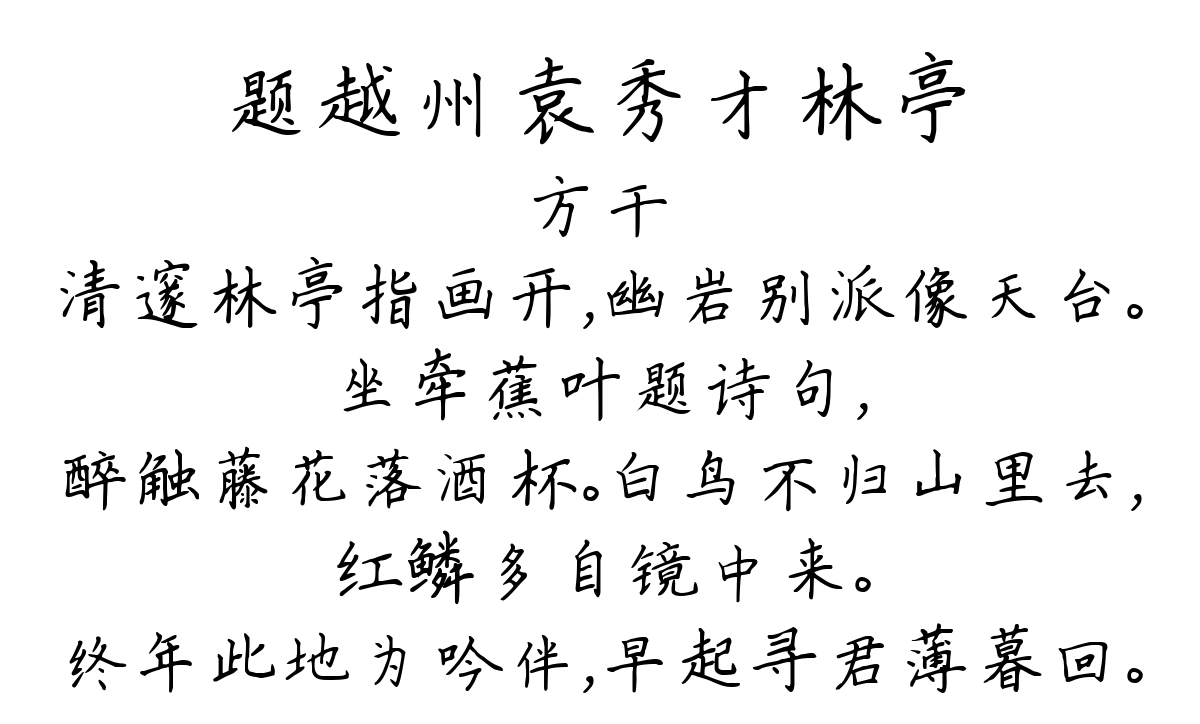 题越州袁秀才林亭
方干
清邃林亭指画开,幽岩别派像天台。
坐牵蕉叶题诗句,
醉触藤花落酒杯。白鸟不归山里去,
红鳞多自镜中来。
终年此地为吟伴,早起寻君薄暮回。